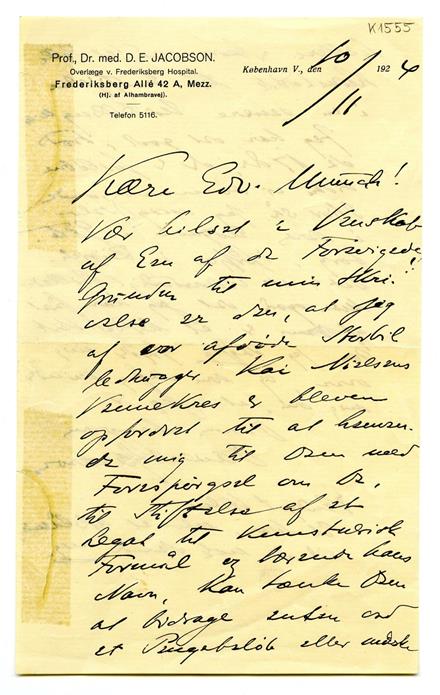 K1555
Prof., Dr. med. D. E. JACOBSON.
Overlæge v. Frederiksberg Hospital.
Frederiksberg Allé 42 A, Mezz.
(Hj. af Alhambravej).
Telefon 5116.
København V., den 10/11 1924
Kære Edv. Munch!
Vær hilset i Venskab
af En af de Forevigede!
Grunden til min Skri-
velse er den, at jeg
af vor afdøde Storbil
ledhugger Kai Nielsens
Vennekres er bleven
opfordret til at henven-
de mig til Dem med
Forespørgsel om De,
til Stiftelse af et
Legat til Kunstnerisk
Formål og bærende hans
Navn, kan tænke Dem
at bidrage enten ved
et Pengebeløb eller måske